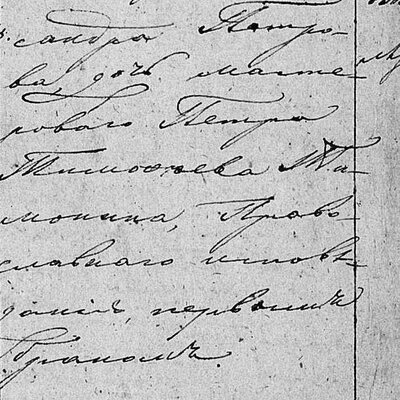 сандра Петро-
ва дочь масте-
роваго Петра
Тимофеева
монина, Право-
славнаго исповѣ-
данія, первымъ
бракомъ.